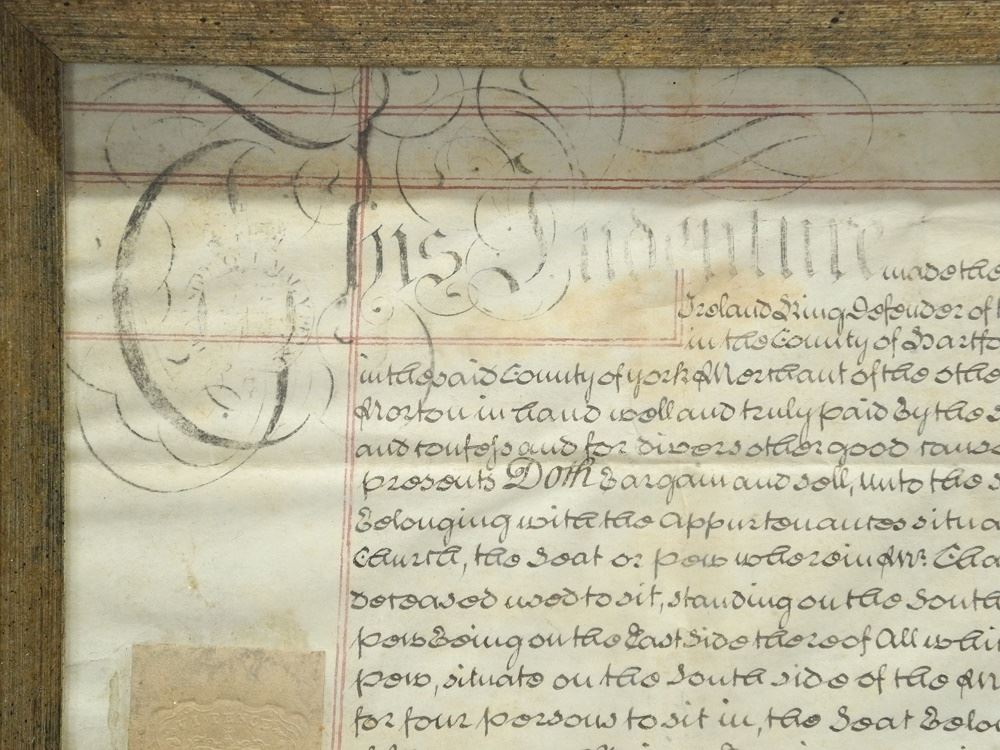 This Indenture made the
Ireland King Defender of t
in the County of Hartfo
in the said County of york Merchant of the othe
Morton in hand well and truly paid By the s
and confess and for divers other good cause
presents Doth Bargain and sell, unto the s
Belonging with the appurtenances situa
Church, the Seat or pew wherein Mr. Cha
deceased used to sit, standing on the South
pew Being on the East side thereof All whi
pew, situate on the South side of the M
for four persons to sit in, the Seat Belo